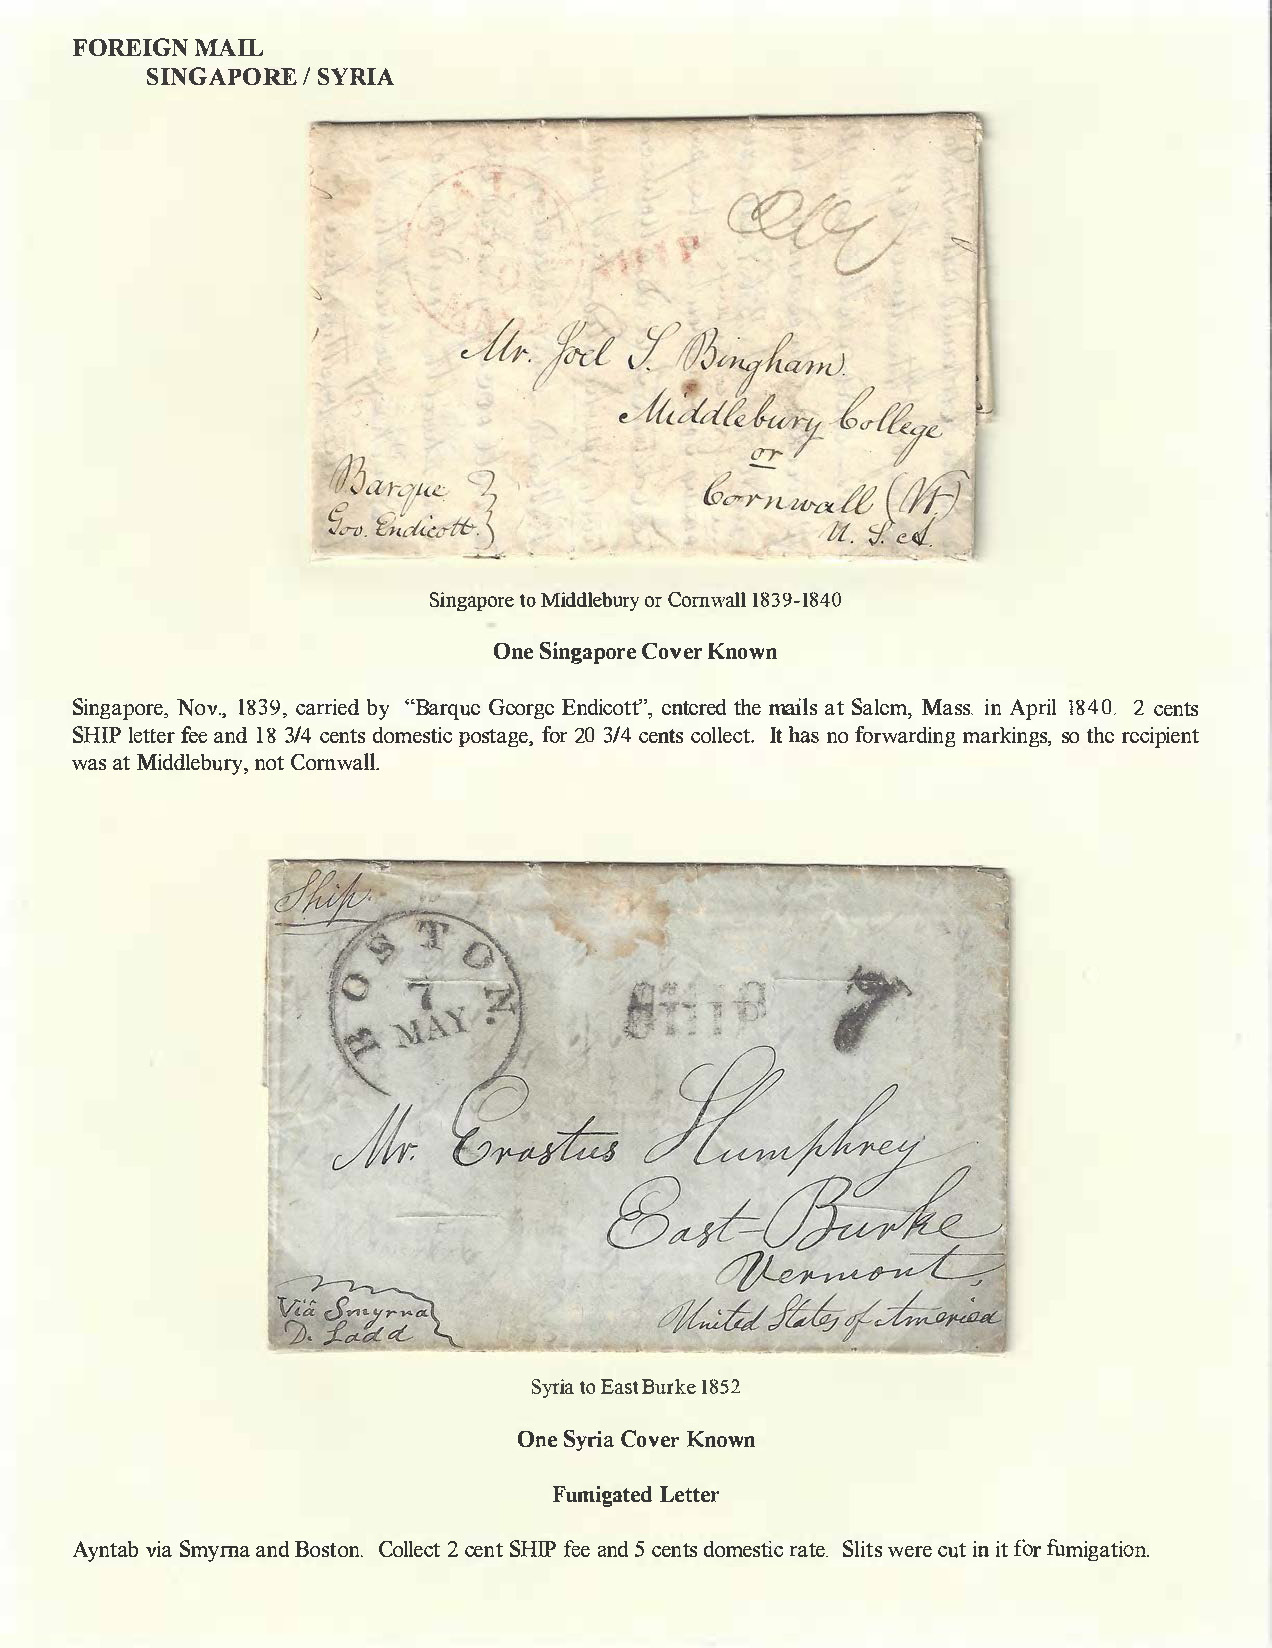 FOREIGN MAIL
SINGAPORE / SYRIA
SHIP
Mr. Joel S. Bingham.
Middlebury College
or
Cornwall (Vt.)
U. S. A.
Barque
Gov. Endicott.
Singapore to Middlebury or Cornwall 1839-1840
One Singapore Cover Known
Singapore, Nov., 1839, carried by "Barque George Endicott", entered the mails at Salem, Mass. in April 1840. 2 cents
SHIP letter fee and 18 3/4 cents domestic postage, for 20 3/4 cents collect. It has no forwarding markings, so the recipient
was at Middlebury, not Cornwall.
Ship.
BOSTON.
7
MAY
SHIP
7
Mr. Erastus Humphrey
East-Burke
Vermont,
United States of America
Via Smyrna
D. Ladd
Syria to East Burke 1852
One Syria Cover Known
Fumigated Letter
Ayntab via Smyrna and Boston. Collect 2 cent SHIP fee and 5 cents domestic rate. Slits were cut in it for fumigation.